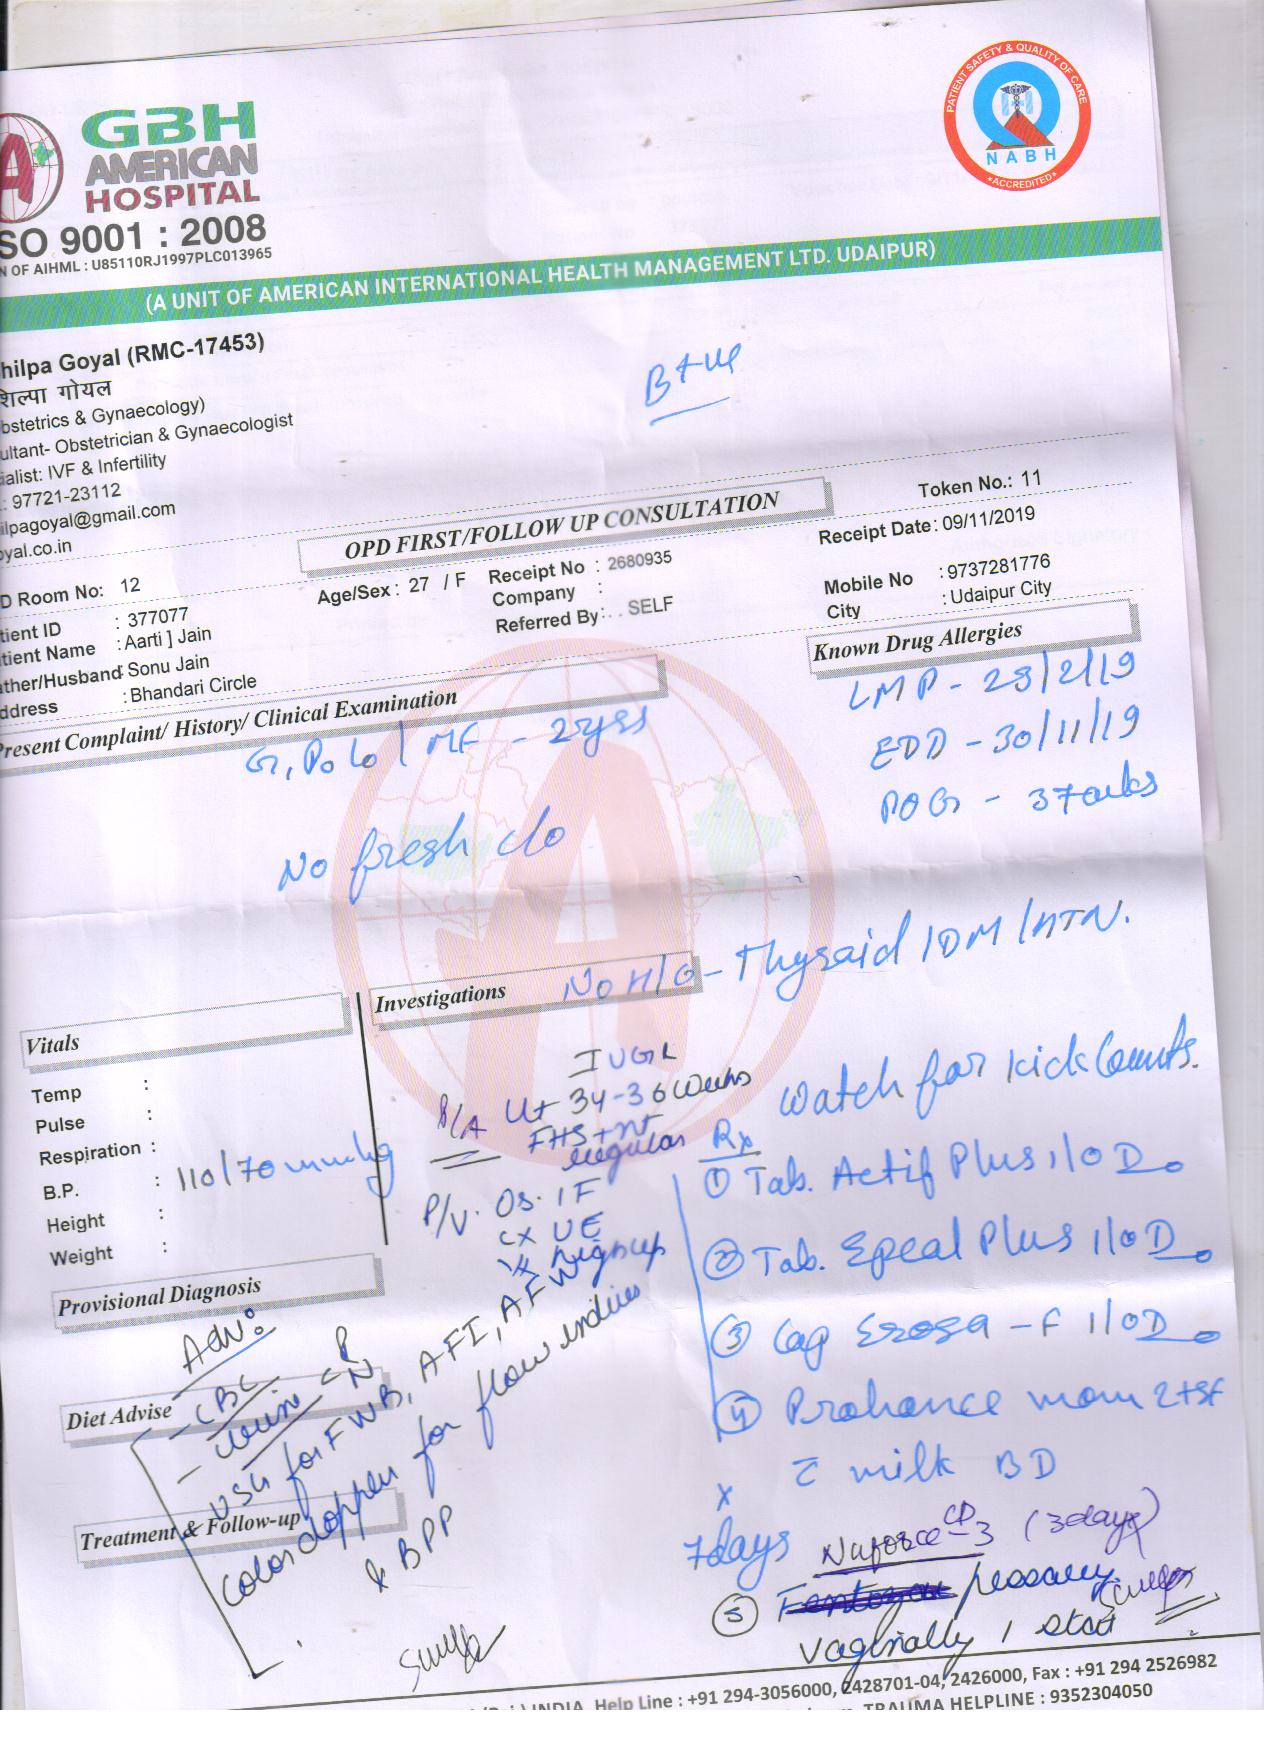 PATIENT SAFETY & QUALITY OF CARE
NABH
ACCREDITED
GBH
AMERICAN
HOSPITAL
SO 9001 : 2008
N OF AIHML : U85110RJ1997PLC013965
(A UNIT OF AMERICAN INTERNATIONAL HEALTH MANAGEMENT LTD. UDAIPUR)
hilpa Goyal (RMC-17453)
शिल्पा गोयल
bstetrics & Gynaecology)
ultant- Obstetrician & Gynaecologist
ialist: IVF & Infertility
.: 97721-23112
ilpagoyal@gmail.com
oyal.co.in
B+ve
OPD FIRST/FOLLOW UP CONSULTATION
Token No.: 11
D Room No: 12
Age/Sex : 27 / F
Receipt No : 2680935
Receipt Date : 09/11/2019
Company :
Mobile No : 9737281776
tient ID : 377077
Referred By: . . SELF
City : Udaipur City
tient Name : Aarti ] Jain
ather/Husband : Sonu Jain
ddress : Bhandari Circle
Present Complaint/ History/ Clinical Examination
Known Drug Allergies
G1P0L0 / MF - 2yrs
LMP - 23/2/19
EDD - 30/11/19
POG - 37wks
No fresh c/o
No H/O - Thyroid / DM / HTN.
Vitals
Investigations
Temp :
Pulse :
Respiration :
B.P. : 110/70mmhg
Height :
Weight :
IUGR
P/A Ut 34-36 weeks
FHS +nt
regular
P/V. Os. 1F
CX UE
Vx high up
Watch for kick Counts.
Rx
① Tab. Actif Plus 1 OD
② Tab. Epeal Plus 1 OD
③ Cap Erosa - F 1 OD
④ Prohance mom 2tsf
c̄ milk BD
x
7days
Nuforce CD-3 (3days)
⑤ pessary
vaginally 1 stat
Provisional Diagnosis
Adv:
Diet Advise
- CBC
- urine C R/N
USG for FWB, AFI, AFW
color doppler for flow indices
& BPP
Treatment & Follow-up
INDIA Help Line : +91 294-3056000, 2428701-04, 2426000, Fax : +91 294 2526982
TRAUMA HELPLINE : 9352304050